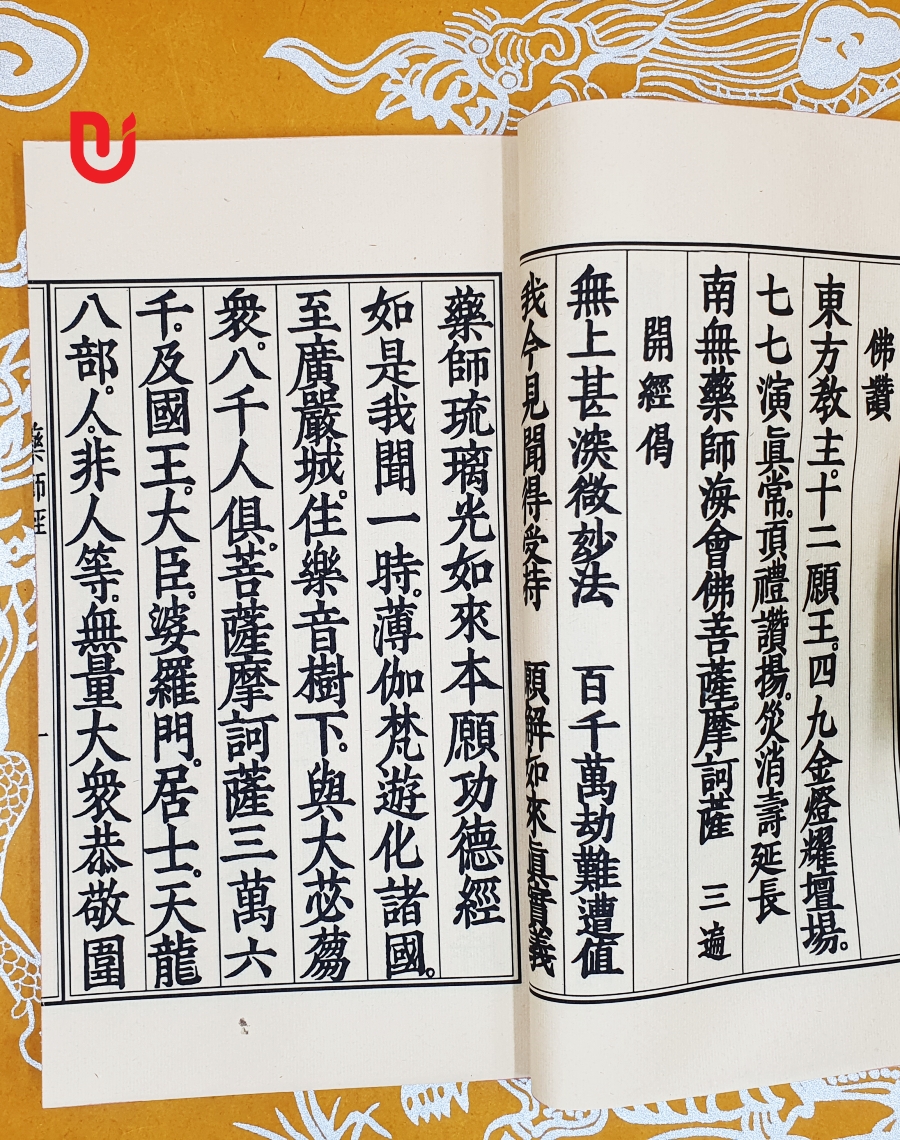 佛讚
東方教主。十二願王。四九金燈耀壇場。
七七演眞常。頂禮讚揚。災消壽延長
南無藥師海會佛菩薩。摩訶薩 三遍
開經偈
無上甚深微妙法 百千萬劫難遭值
我今見聞得受持 願解如來眞實義
藥師琉璃光如來本願功德經
如是我聞一時。薄伽梵遊化諸國。
至廣嚴城。住樂音樹下。與大苾蒭
衆。八千人俱。菩薩摩訶薩三萬六
千。及國王。大臣。婆羅門。居士。天龍
八部。人。非人等。無量大衆恭敬圍
藥師經
一